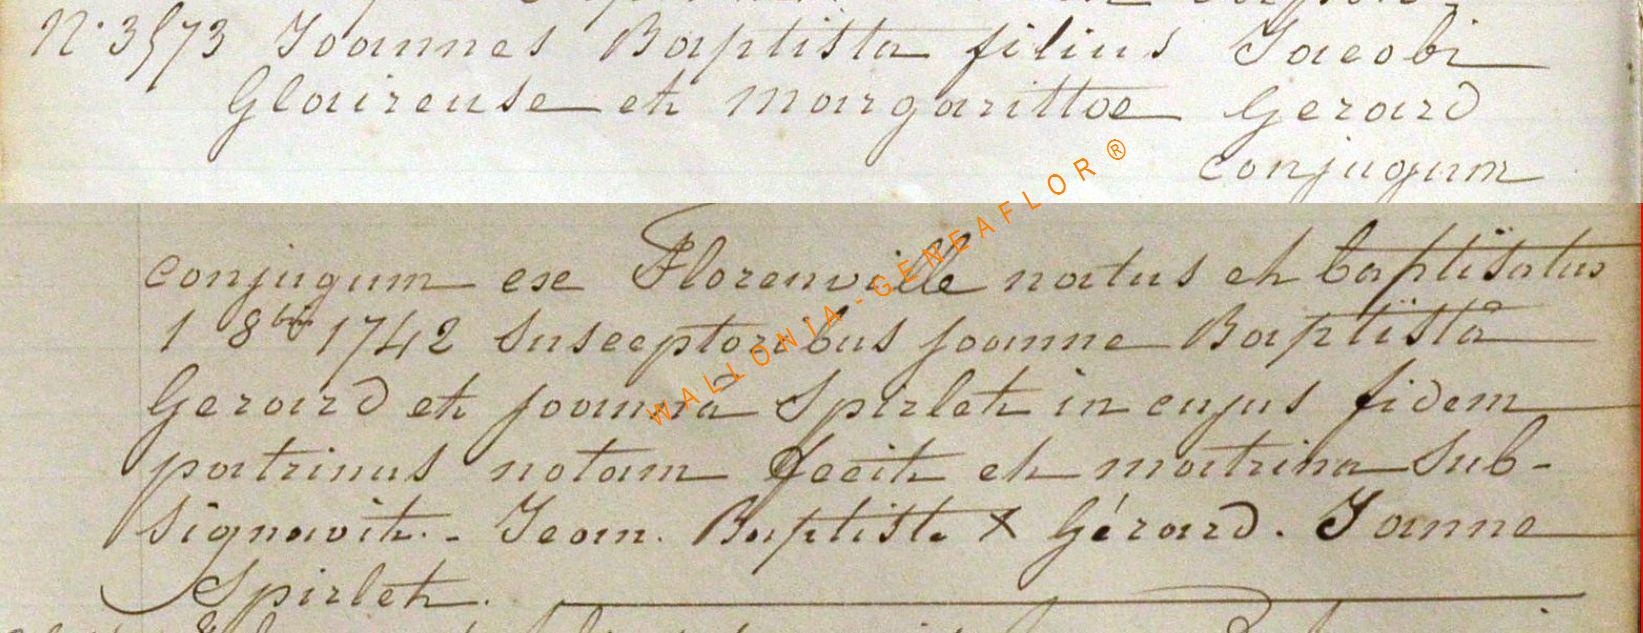 N. 3573 Joannes Baptista filius Jacobi
Glaireuse et Margarittae Gerard
conjugum
conjugum ex Florenville natus et baptisatus
1 8bris 1742 Susceptoribus joanne Baptistâ
Gerard et joannâ Spirlet in cujus fidem
patrinus notam fecit et matrina Sub-
Signavit. - Jean. Baptiste X Gérard. Janne
Spirlet.
WALLONIA-GENEAFLOR ®